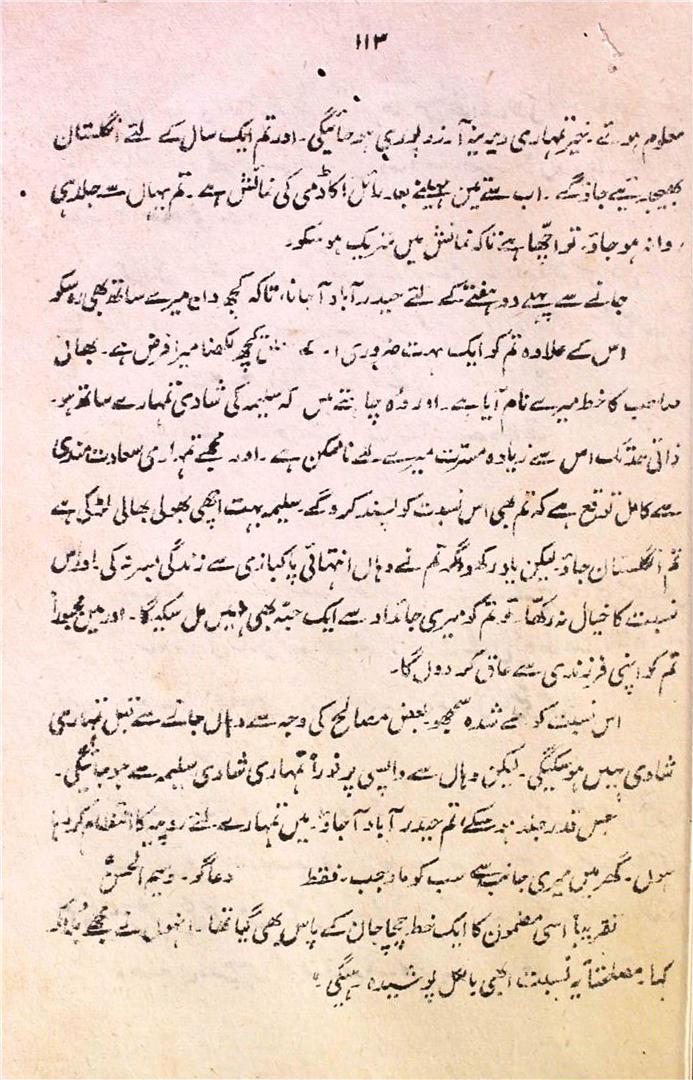 ۱۱۳
معلوم ہوتے۔ خیر تمہاری دیرینہ آرزو پوری ہو جائیگی۔ اور تم ایک سال کے لئے انگلستان
بھیجدیئے جاؤگے۔ اب سے تین مہینے بعد رائل اکاڈمی کی نمائش ہے۔ تم یہاں سے جلد ہی
روانہ ہو جاؤ۔ تو اچھا ہے تاکہ نمائش میں شریک ہو سکو۔
جانے سے پہلے دو ہفتے کے لئے حیدرآباد آ جانا، تاکہ کچھ دن میرے ساتھ بھی رہ سکو
اس کے علاوہ تم کو ایک بہت ضروری کچھ لکھنا میرا فرض ہے۔ بھائی
صاحب کا خط میرے نام آیا ہے۔ اور وہ چاہتے ہیں کہ سلیمہ کی شادی تمہارے ساتھ ہو۔
ذاتی حد تک اس سے زیادہ مسرت میرے لئے ناممکن ہے۔ اور مجھے تمہاری سعادت مندی
سے کامل توقع ہے کہ تم بھی اس نسبت کو پسند کروگے۔ سلیمہ بہت اچھی بھولی بھالی لڑکی ہے
تم انگلستان جاؤ لیکن یاد رکھو اگر تم نے وہاں انتہائی پاکبازی سے زندگی بسر نہ کی۔ اور اس
نسبت کا خیال نہ رکھا۔ تو تم کو میری جائداد سے ایک حبّہ بھی نہیں مل سکیگا۔ اور میں مجبوراً
تم کو اپنی فرزندی سے عاق کر دوں گا۔
اس نسبت کو طے شدہ سمجھو بعض مصالح کی وجہ سے وہاں جانے سے قبل تمہاری
شادی نہیں ہو سکیگی۔ لیکن وہاں سے واپسی پر فوراً تمہاری شادی سلیمہ سے ہو جائیگی۔
جس قدر جلد ہو سکے تم حیدرآباد آ جاؤ۔ میں تمہارے لئے روپیہ کا انتظام کر رہا
ہوں۔ گھر میں میری جانب سے سب کو ماوجب۔ فقط دعاگو۔ وسیم الحسن
تقریباً اسی مضمون کا ایک خط چچا جان کے پاس بھی گیا تھا۔ انہوں نے مجھے بُلا کر
کہا۔ مصلحتاً یہ نسبت ابھی بالکل پوشیدہ رہیگی۔